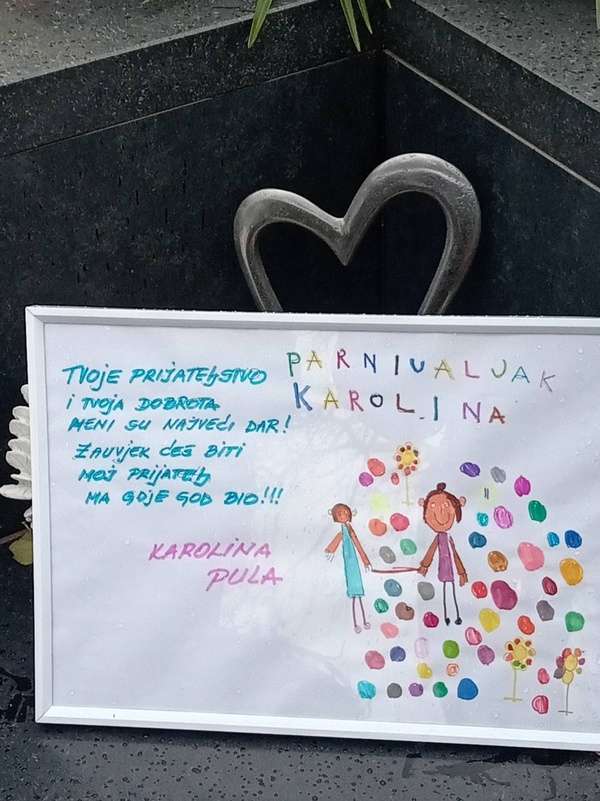 TVOJE PRIJATELJSTVO
I TVOJA DOBROTA
MENI SU NAJVEĆI DAR!
ZAUVJEK ĆEŠ BITI
MOJ PRIJATELJ
MA GDJE GOD BIO!!!
KAROLINA
PULA
PARNIVALJAK
KAROLINA